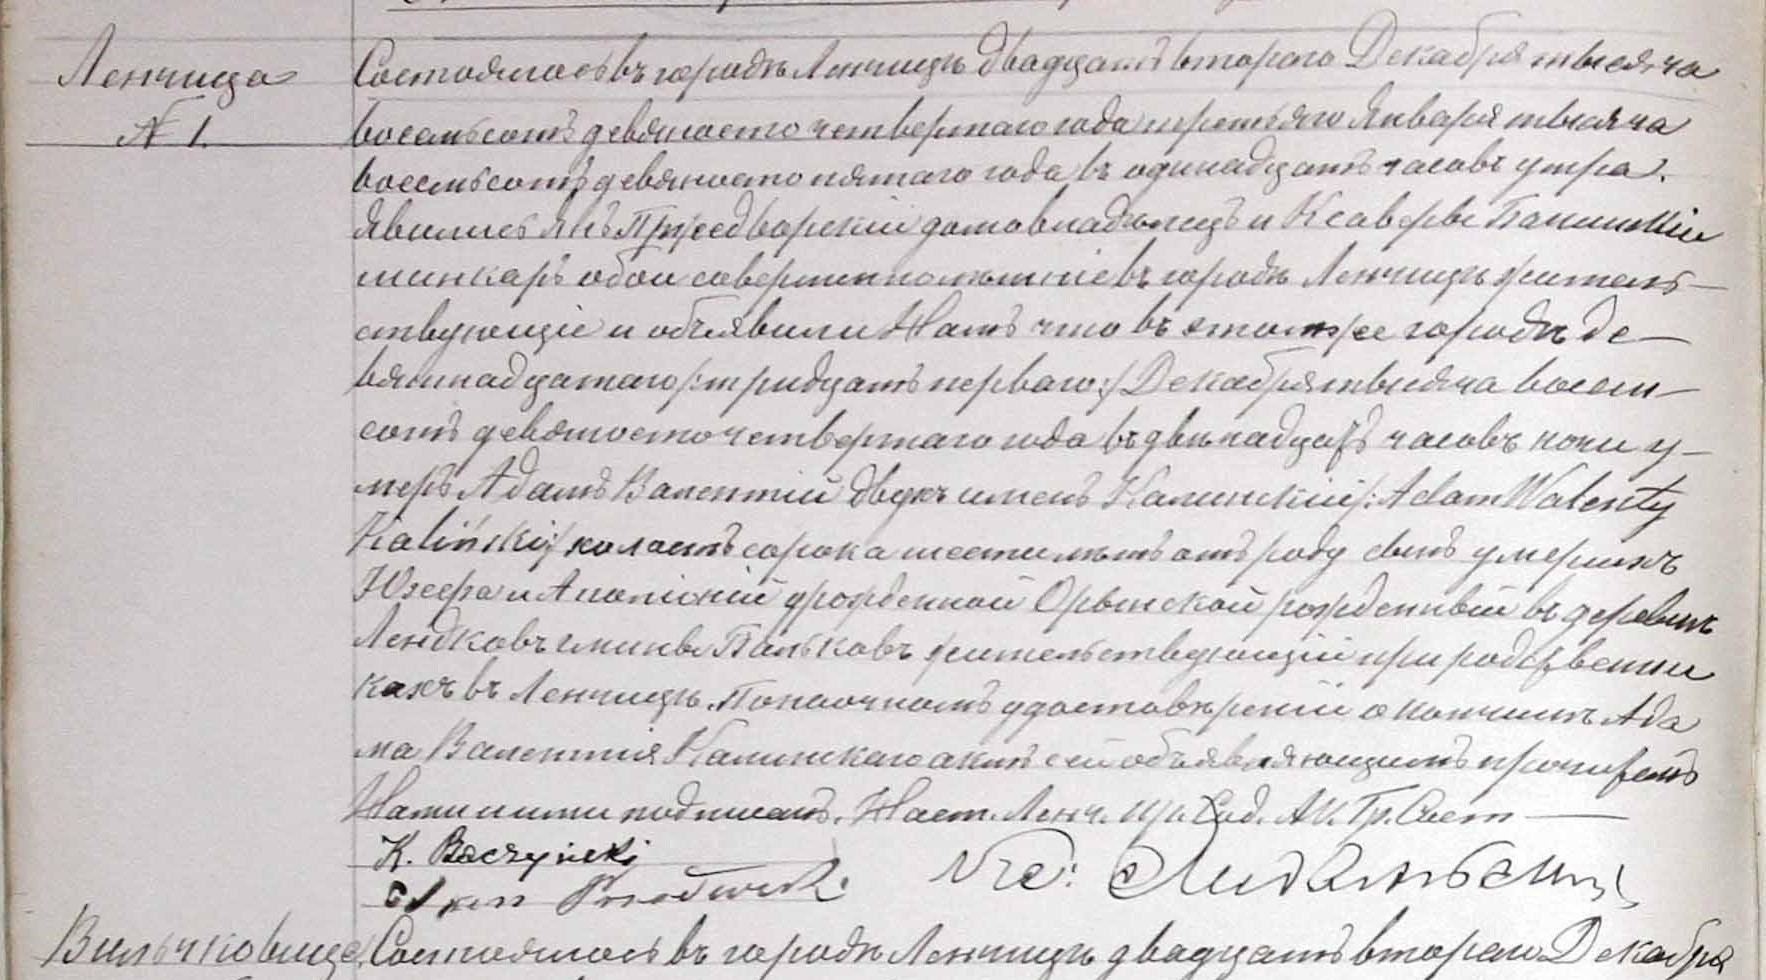 Ленчица
№ 1.
Состоялось въ городѣ Ленчицѣ двадцать втораго Декабря тысяча
восемьсотъ девяносто четвертаго года третьяго Января тысяча
восемьсотъ девяносто пятаго года въ одинадцать часовъ утра.
Явились Янъ Пржедворскій домовладѣлецъ и Ксаверы Бачинскій
шинкаръ обои совершеннолѣтніе въ городѣ Ленчицѣ житель-
ствующіе и объявили Намъ что въ этомже городѣ де-
вятнадцатаго /:тридцать перваго:/ Декабря тысяча восем-
сотъ девяносто четвертаго года въ двѣнадцать часовъ ночи у-
меръ Адамъ Валентій двухъ именъ Калинскій /:Adam Walenty
Kaliński:/ холостъ сорока шести лѣтъ отъ роду сынъ умершихъ
Юзефа и Аполоніи урожденной скон рожденный въ деревнѣ
Лендковъ гмины жительствующій при родственни
кахъ въ Ленчицѣ. По наочномъ удостовѣреніи о кончинѣ Ада
ма Валентія Калинскаго актъ сей объявляющимъ прочитанъ
Нами и ими подписанъ. Наст. Ленч. пр. Сод. Ак. Гр. Сост
K. Baczyński
Jan
Вильчковице Состоялось въ городѣ Ленчицѣ двадцать втораго Декабря